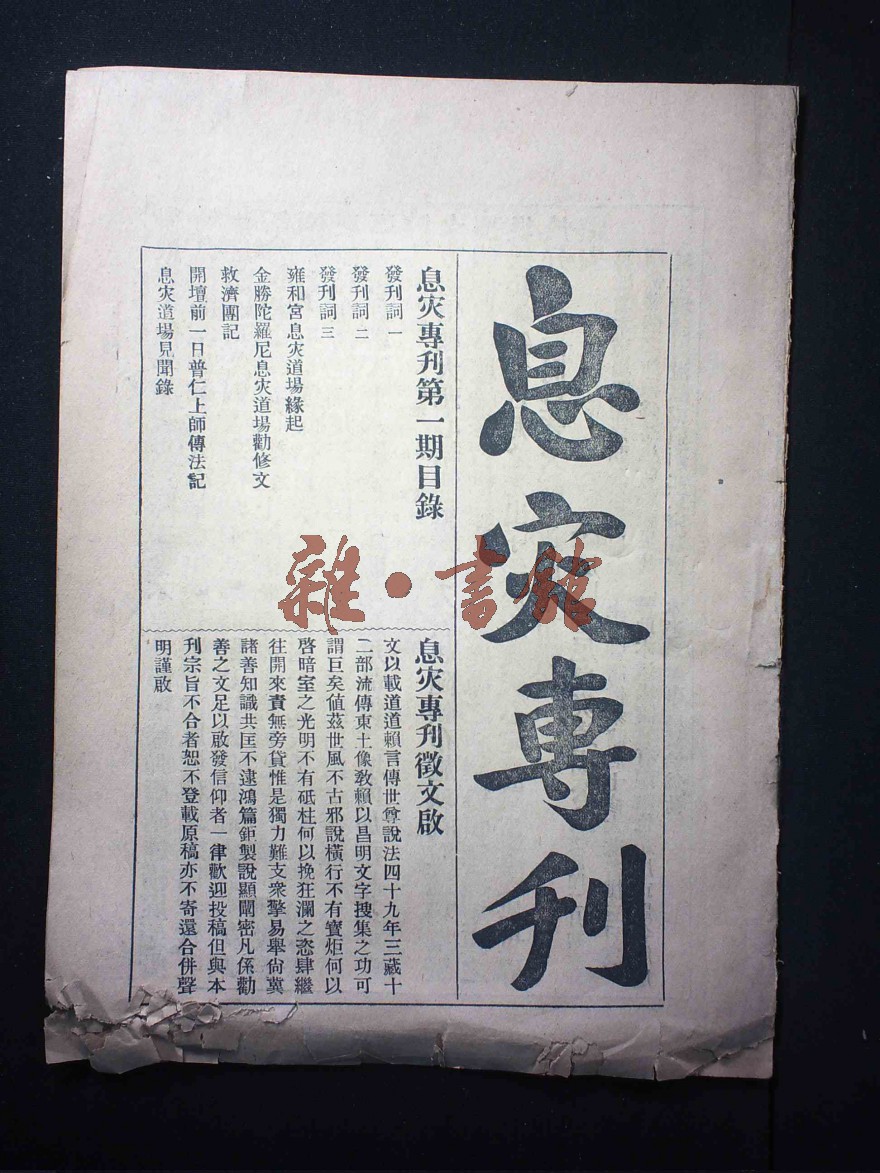 息灾專刊
息灾專刊第一期目錄
發刊詞一
發刊詞二
發刊詞三
雍和宮息灾道場緣起
金勝陀羅尼息灾道場勸修文
救濟團記
開壇前一日普仁上師傳法記
息灾道場見聞錄
息灾專刊徵文啟
文以載道道賴言傳世尊說法四十九年三藏十
二部流傳東土像教賴以昌明文字搜集之功可
謂巨矣値茲世風不古邪說橫行不有寶炬何以
啓暗室之光明不有砥柱何以挽狂瀾之恣肆繼
往開來責無旁貸惟是獨力難支衆擎易舉尙冀
諸善知識共匡不逮鴻篇鉅製說顯闡密凡係勸
善之文足以啟發信仰者一律歡迎投稿但與本
刊宗旨不合者恕不登載原稿亦不寄還合併聲
明謹啟
雜·書館